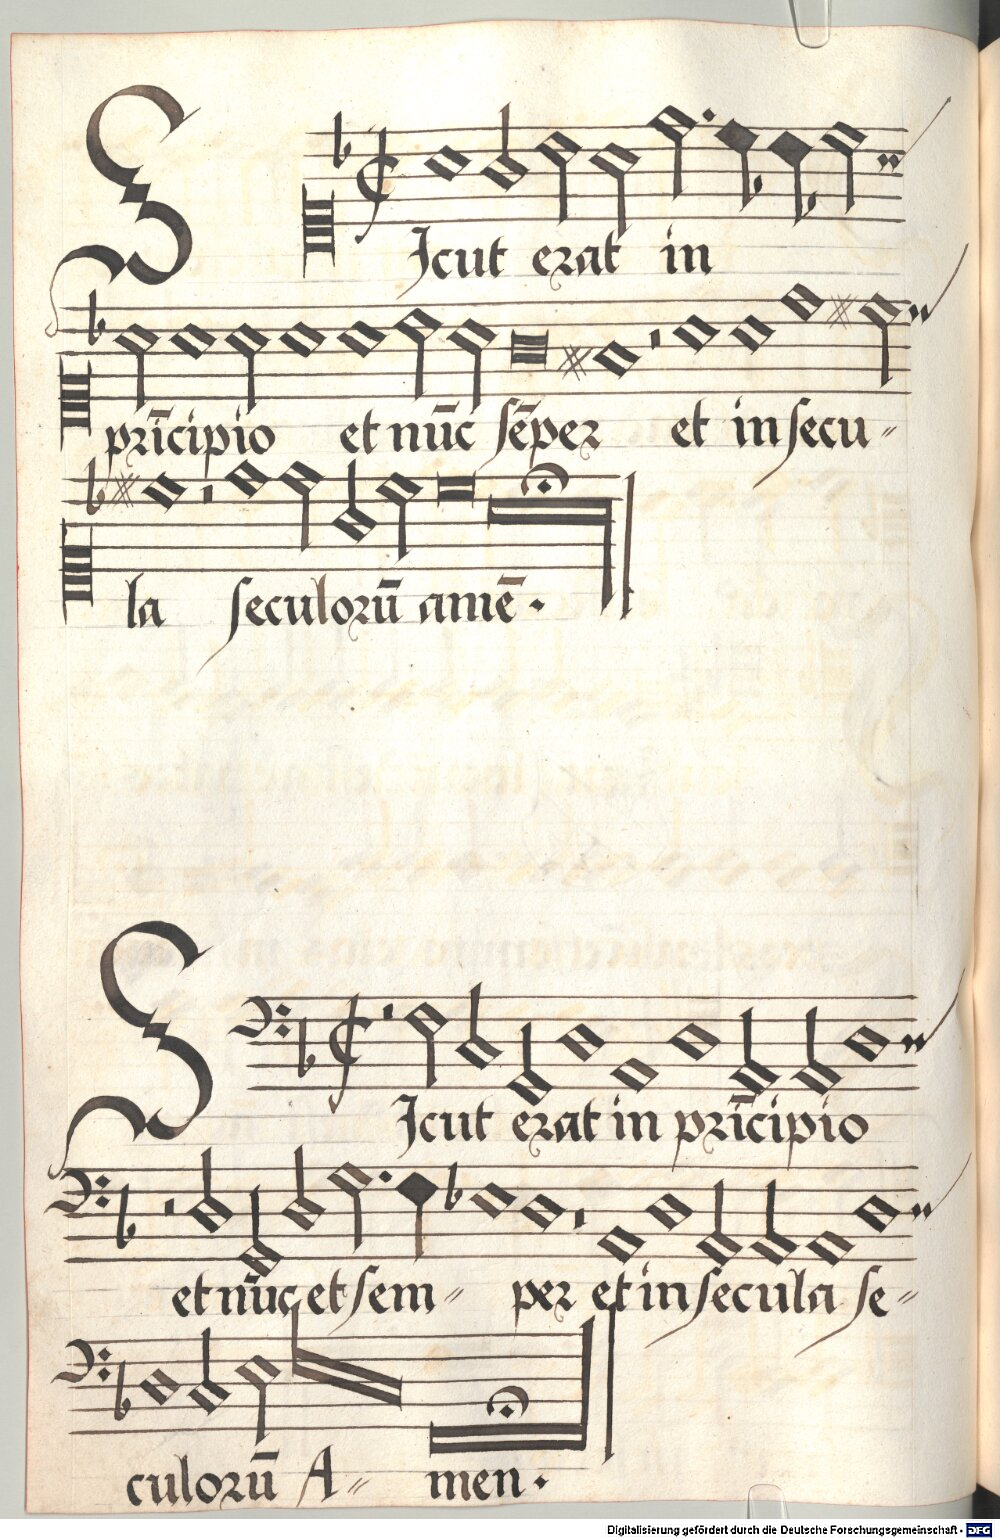 SJcut erat in
prīcipio et nūc sēper et in secu〃
la seculorū amē.
SJcut erat in prīcipio
et nūc et sem〃 per et in secula se〃
culorū A〃 men.
Digitalisierung gefördert durch die Deutsche Forschungsgemeinschaft - DFG